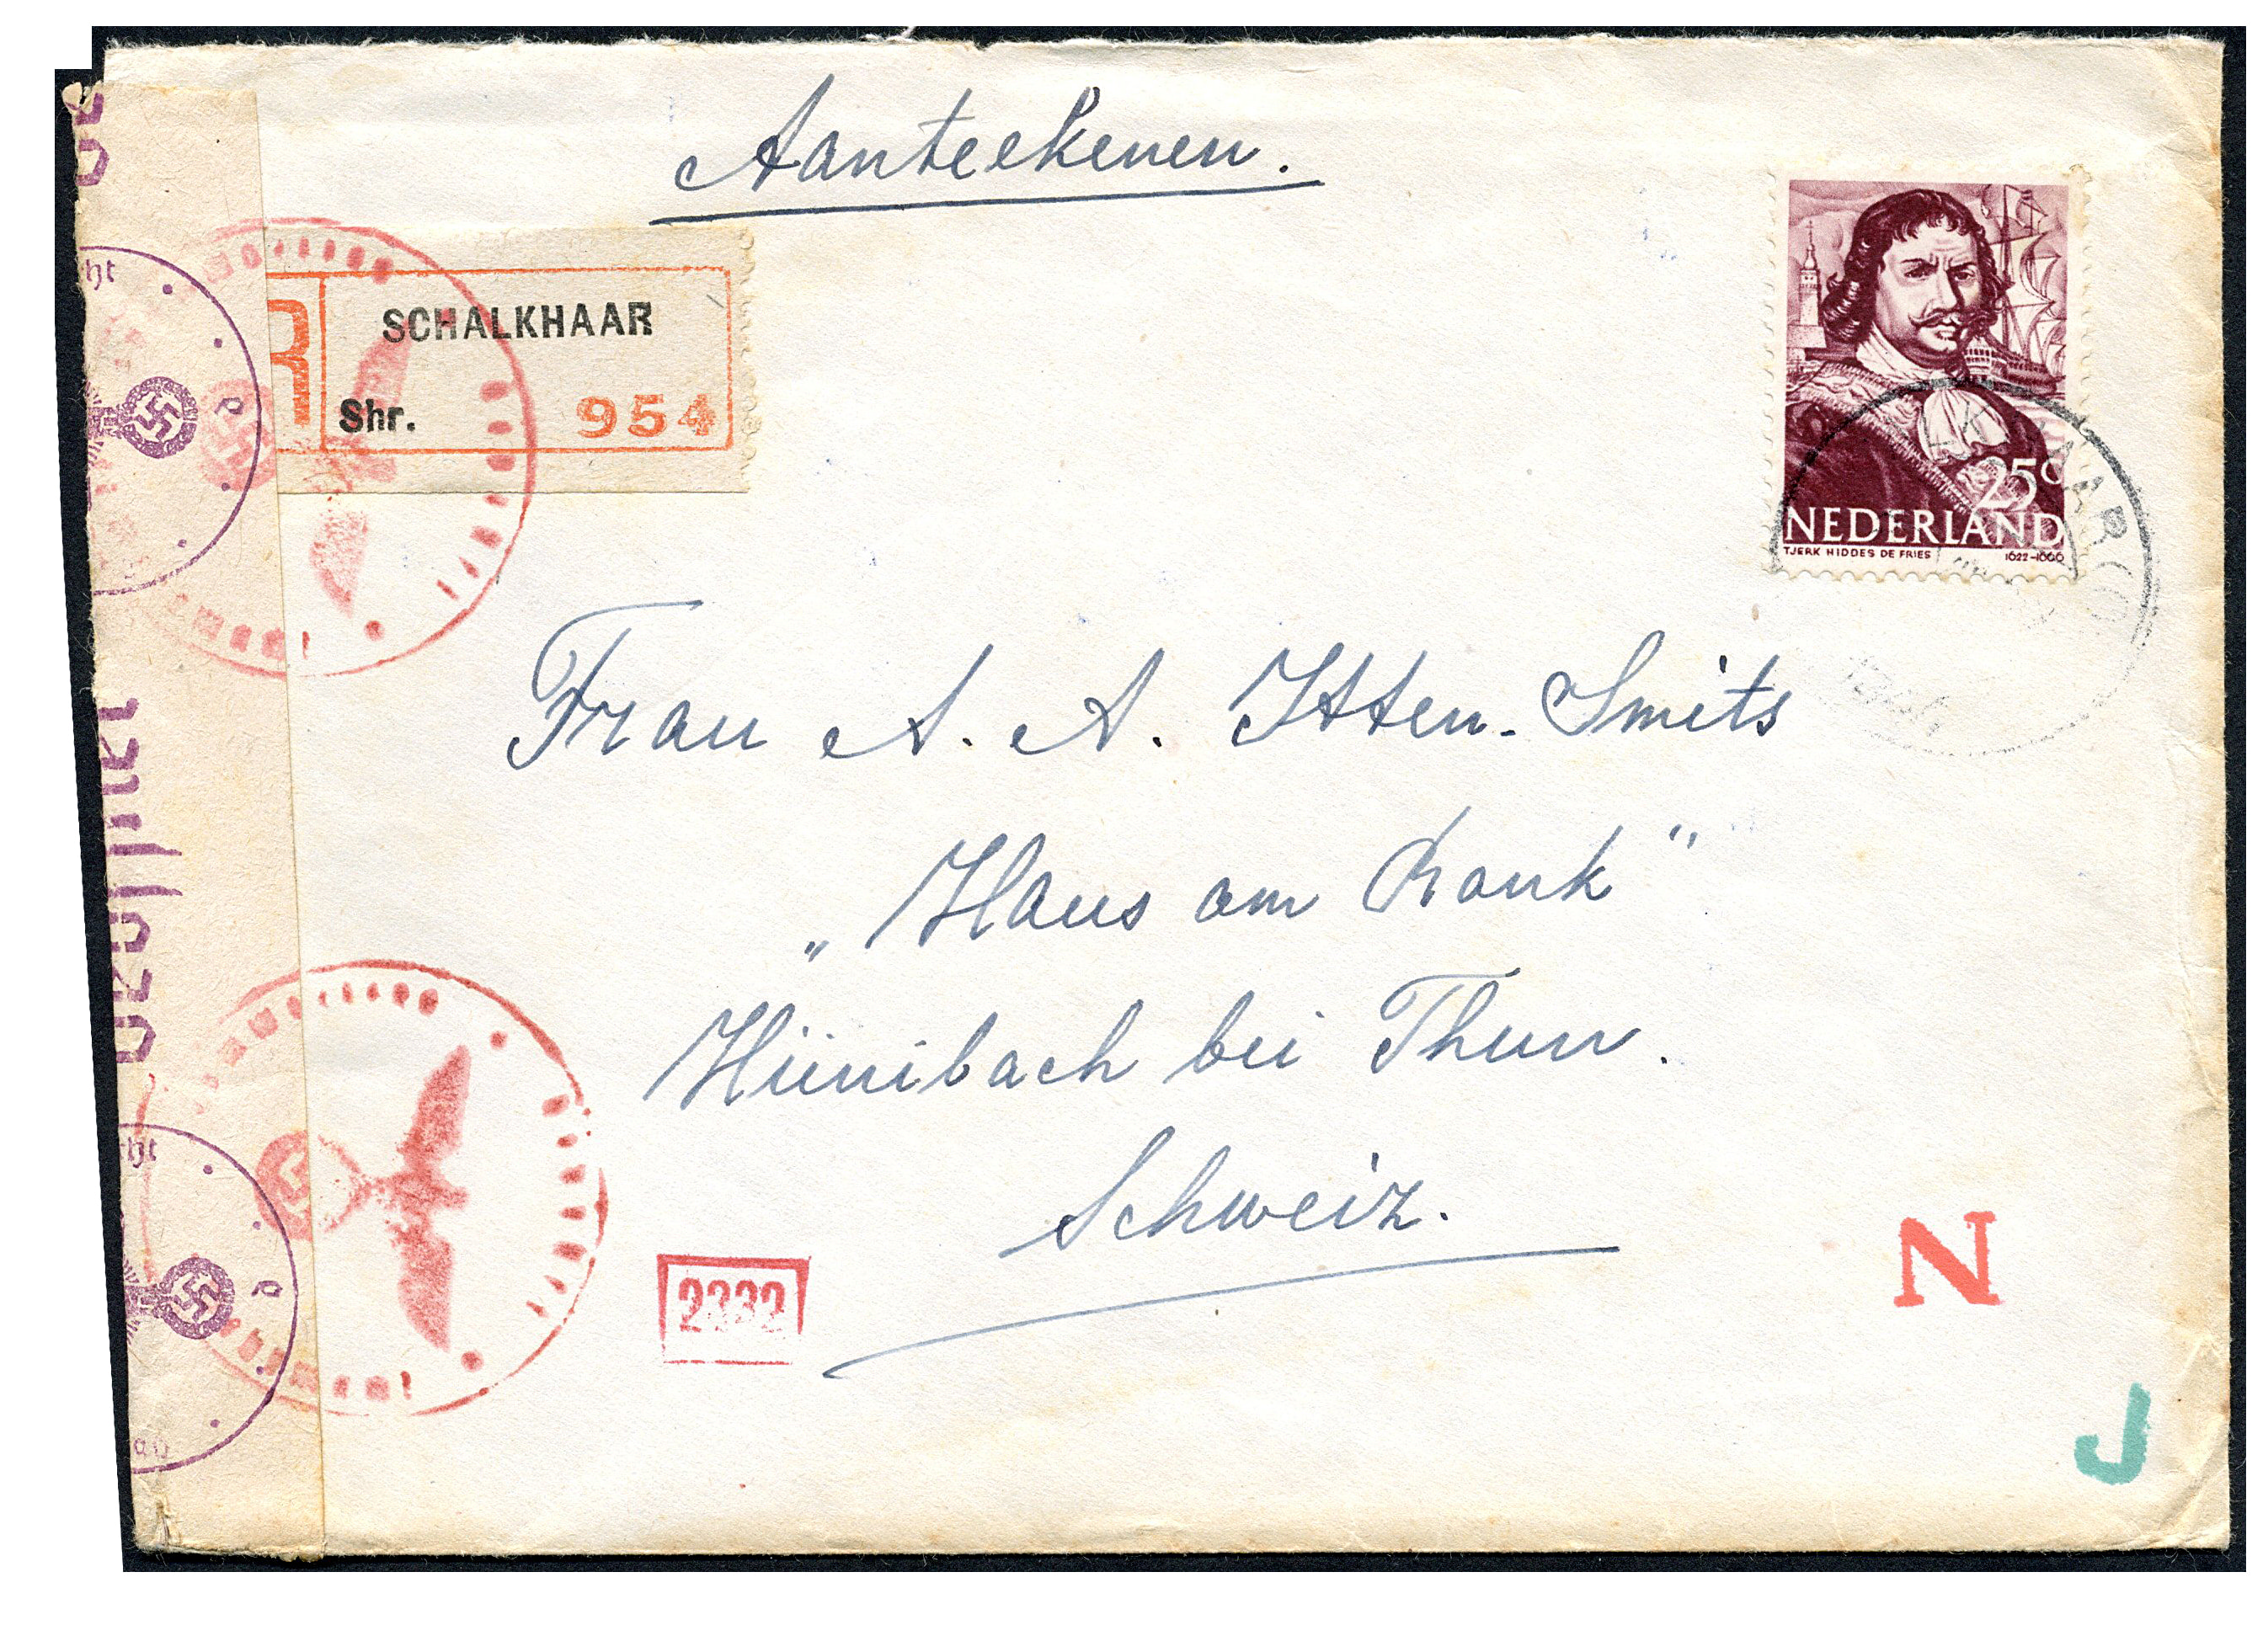 Aanteekenen.
R
SCHALKHAAR
Shr. 954
25c
NEDERLAND
TJERK HIDDES DE FRIES 1622-1666
Frau A. A. Itten-Smits
„Haus am Rank"
Hünibach bei Thun.
Schweiz.
2332
N
J
Geöffnet